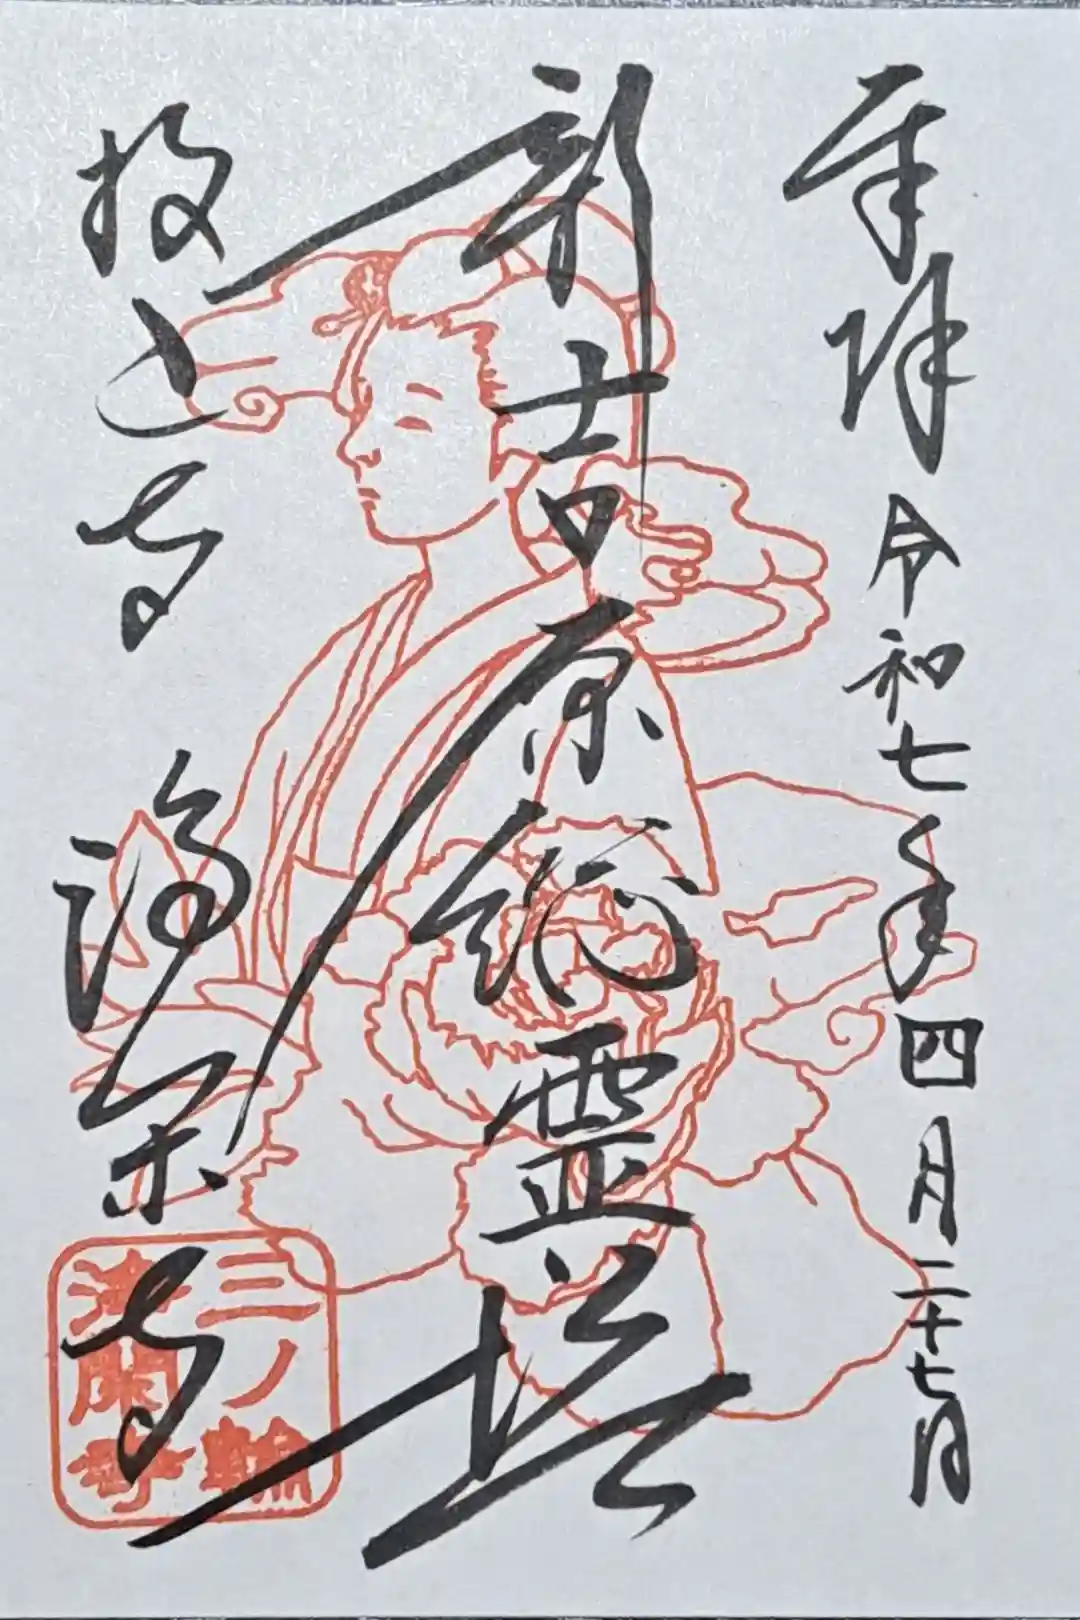 奉拝 令和七年四月二十七日
新吉原総霊塔
投込寺 浄閑寺
三ノ輪
浄閑寺